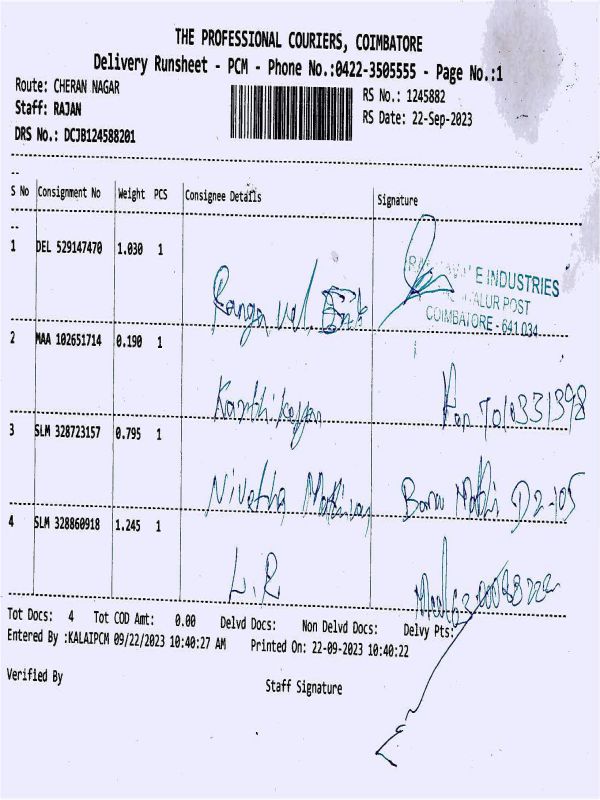 THE PROFESSIONAL COURIERS, COIMBATORE
Delivery Runsheet - PCM - Phone No.:0422-3505555 - Page No.:1
Route: CHERAN NAGAR
RS No.: 1245882
Staff: RAJAN
RS Date: 22-Sep-2023
DRS No.: DCJB124588201
S No Consignment No Weight PCS Consignee Details Signature
1 DEL 529147470 1.030 1
E INDUSTRIES
ALUR POST
COIMBATORE - 641 034
Ranga vel
2 MAA 102651714 0.190 1
Karthikeyan
3 SLM 328723157 0.795 1
Nivetha D2-105
4 SLM 328860918 1.245 1
L.R
Tot Docs: 4 Tot COD Amt: 0.00 Delvd Docs: Non Delvd Docs: Delvy Pts:
Entered By :KALAIPCM 09/22/2023 10:40:27 AM Printed On: 22-09-2023 10:40:22
Verified By Staff Signature